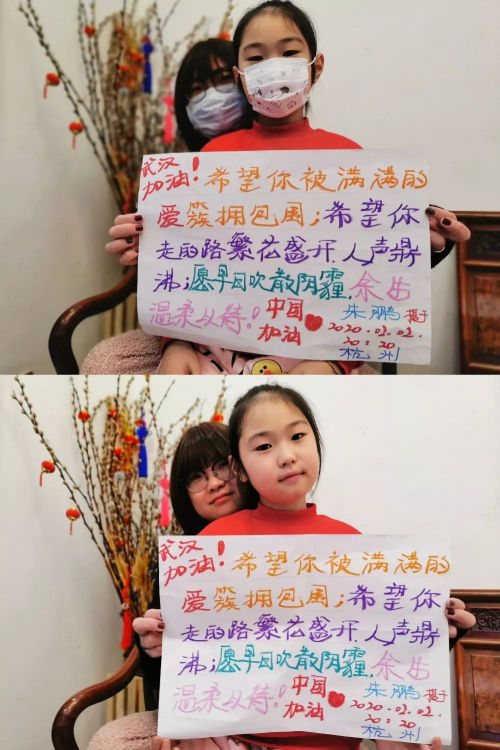 武汉
加油!
希望你被满满的
爱簇拥包围;希望你
走的路繁花盛开,人声鼎
沸;愿早日吹散阴霾,余生
温柔以待!
中国
加油
朱鹏
2020.02.02.
20:20
杭州
武汉
加油!
希望你被满满的
爱簇拥包围;希望你
走的路繁花盛开,人声鼎
沸;愿早日吹散阴霾,余生
温柔以待!
中国
加油
朱鹏
2020.02.02.
20:20
杭州